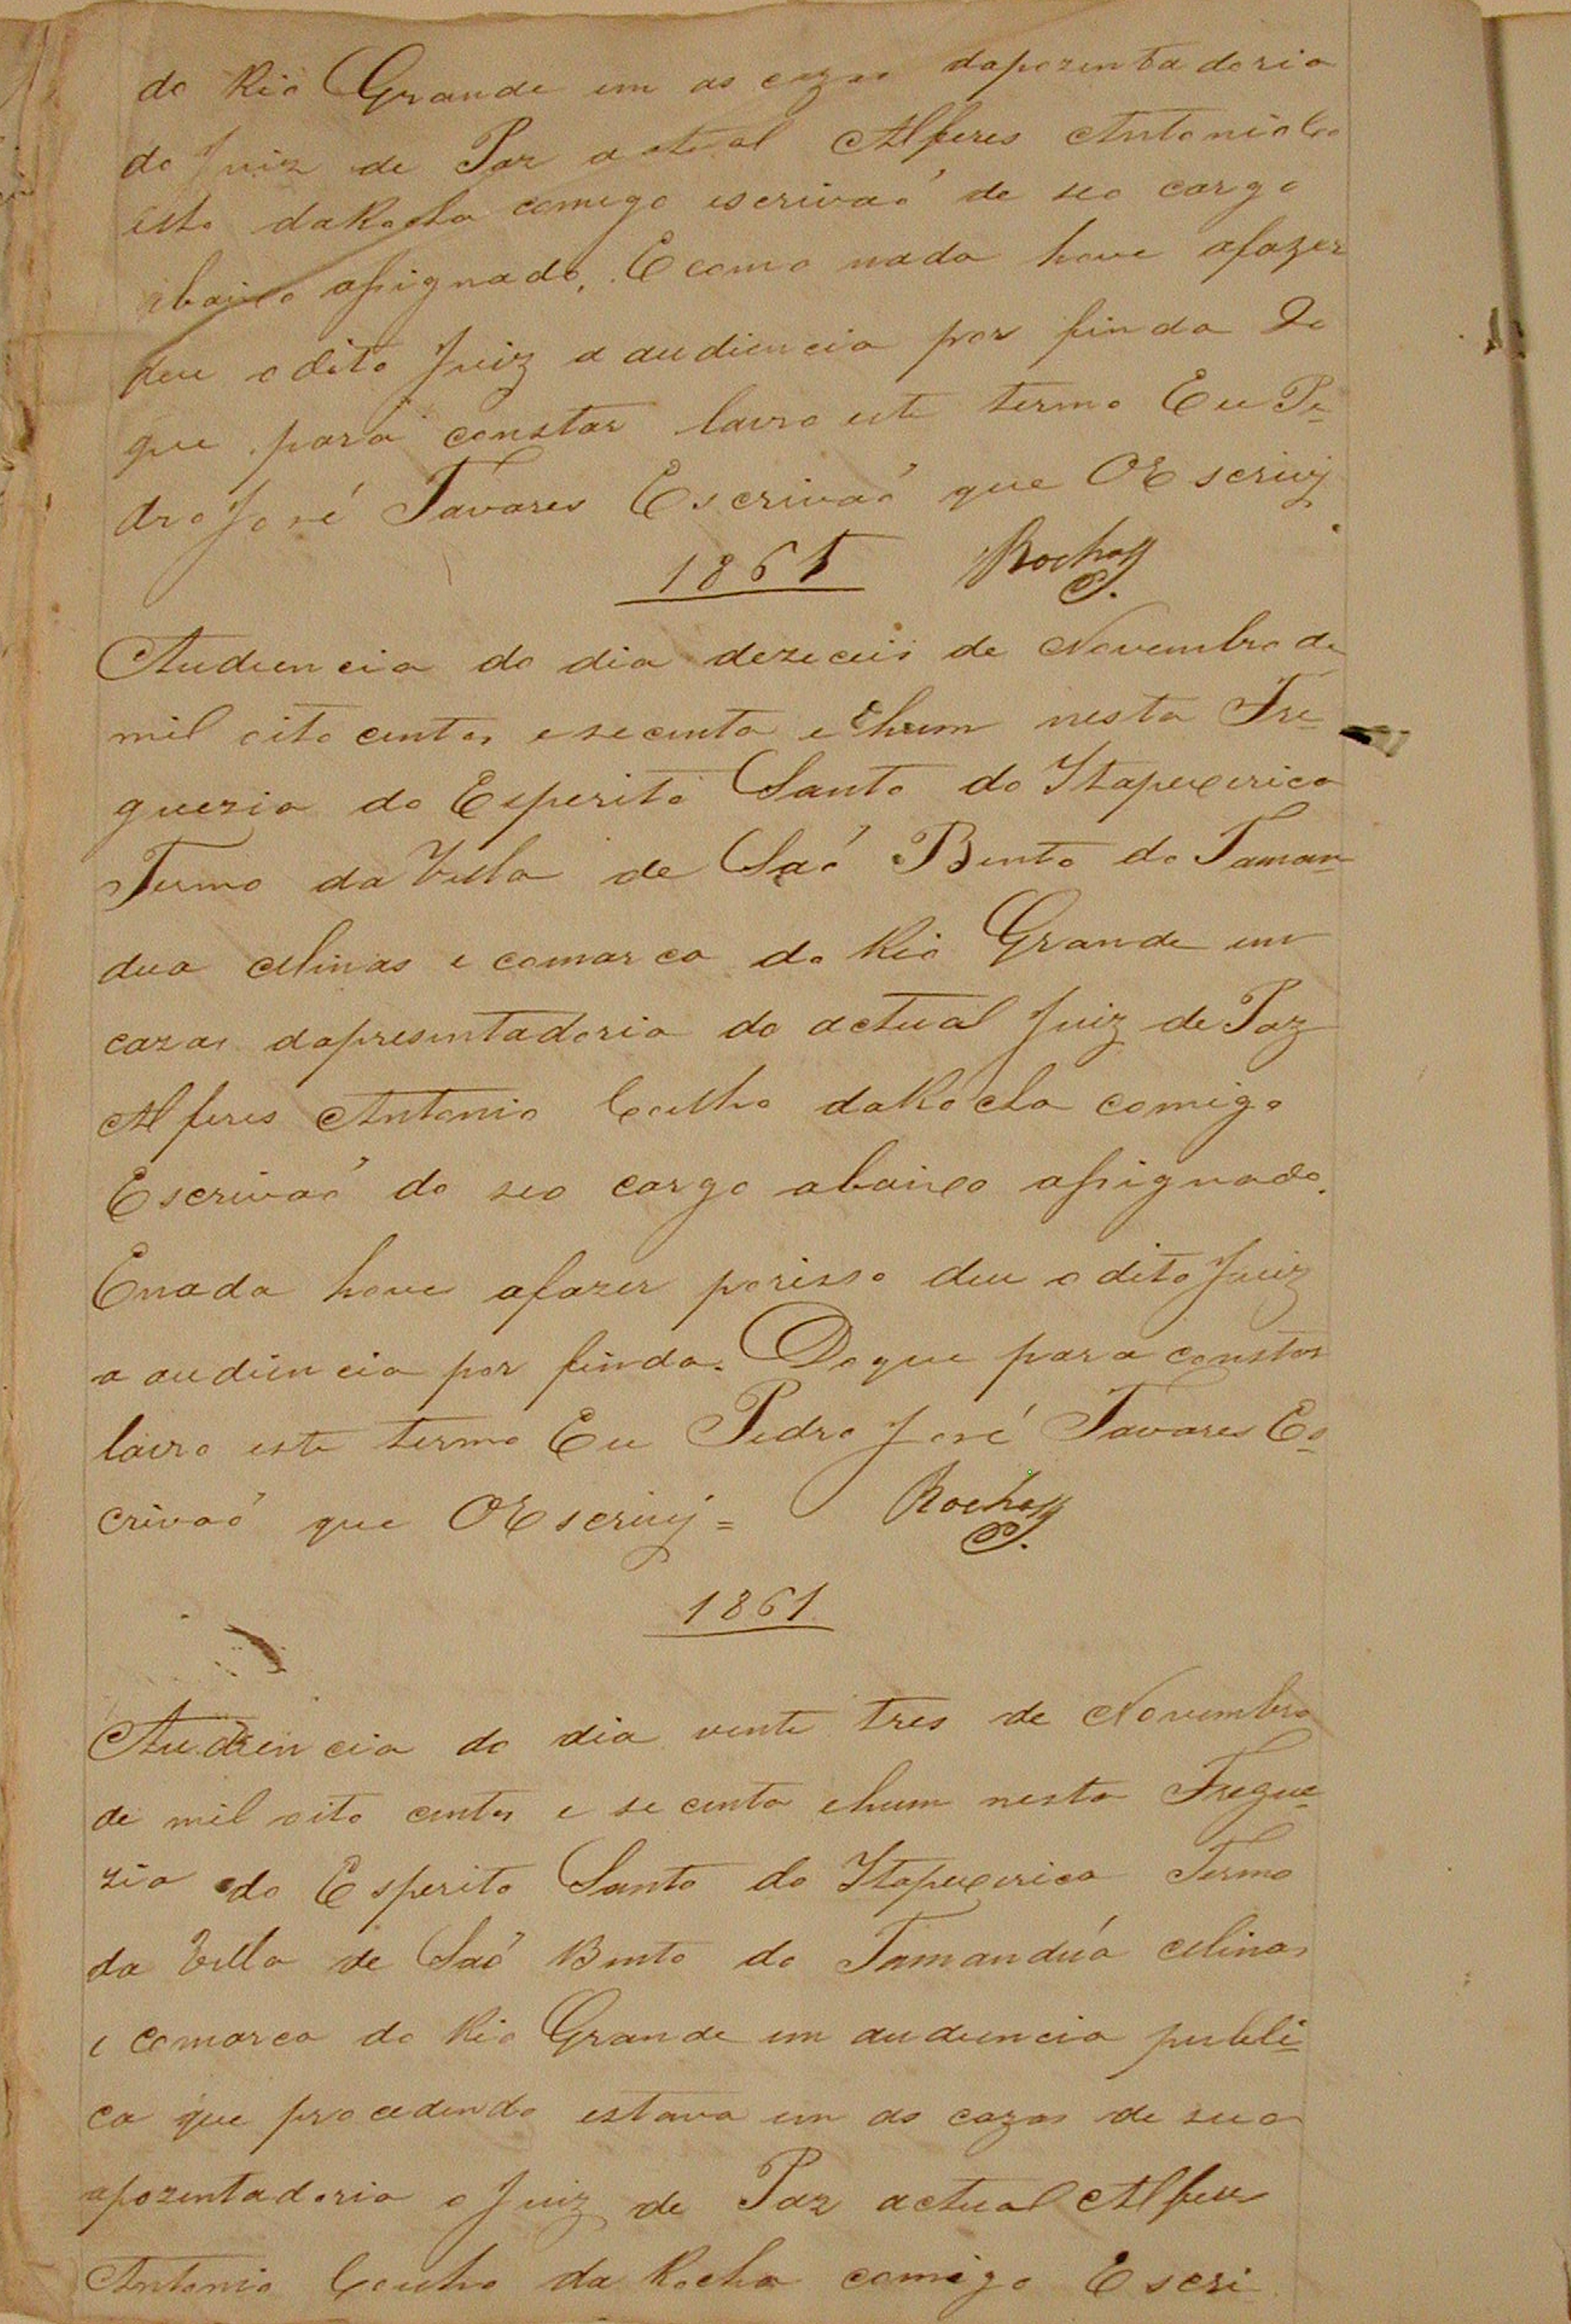 do Rio Grande em as cazas daposentadoria
do Juiz de Paz actual Alferes Antonio Co
elho daRocha comigo escrivaõ de seo cargo
abaixo assignado. E como nada hove afazer
deu odito Juiz a audiencia por finda Do
que para constar lavro este termo Eu Pe-
dro José Tavares Escrivaõ que OEscrivy
1861 Rocha
Audiencia do dia dezeceis de Novembro de
mil oito centos esecenta e hum nesta Fre-
guezia do Esperito Santo do Itapexerica
Termo da Villa de Saõ Bento do Taman-
dua Minas e comarca do Rio Grande em
cazas dapresentadoria do actual Juiz de Paz
Alferes Antonio Coelho daRocha comigo
Escrivaõ do seo cargo abaixo assignado.
Enada hove afazer porisso deu odito Juiz
a audiencia por finda. Doque para constar
lavro este termo Eu Pedro José Tavares Es-
crivaõ que OEscrivy = Rocha
1861
Audiencia do dia vente tres de Novembro
de mil oito centos e secenta ehum nesta Fregue-
zia do Esperito Santo do Itapexerica Termo
da Villa de Saõ Bento do Tamanduá Minas
e comarca do Rio Grande em audiencia publi-
ca que procedendo estava em as cazas de sua
apozentadoria o Juiz de Paz actual Alferes
Antonio Coelho da Rocha comigo Escri